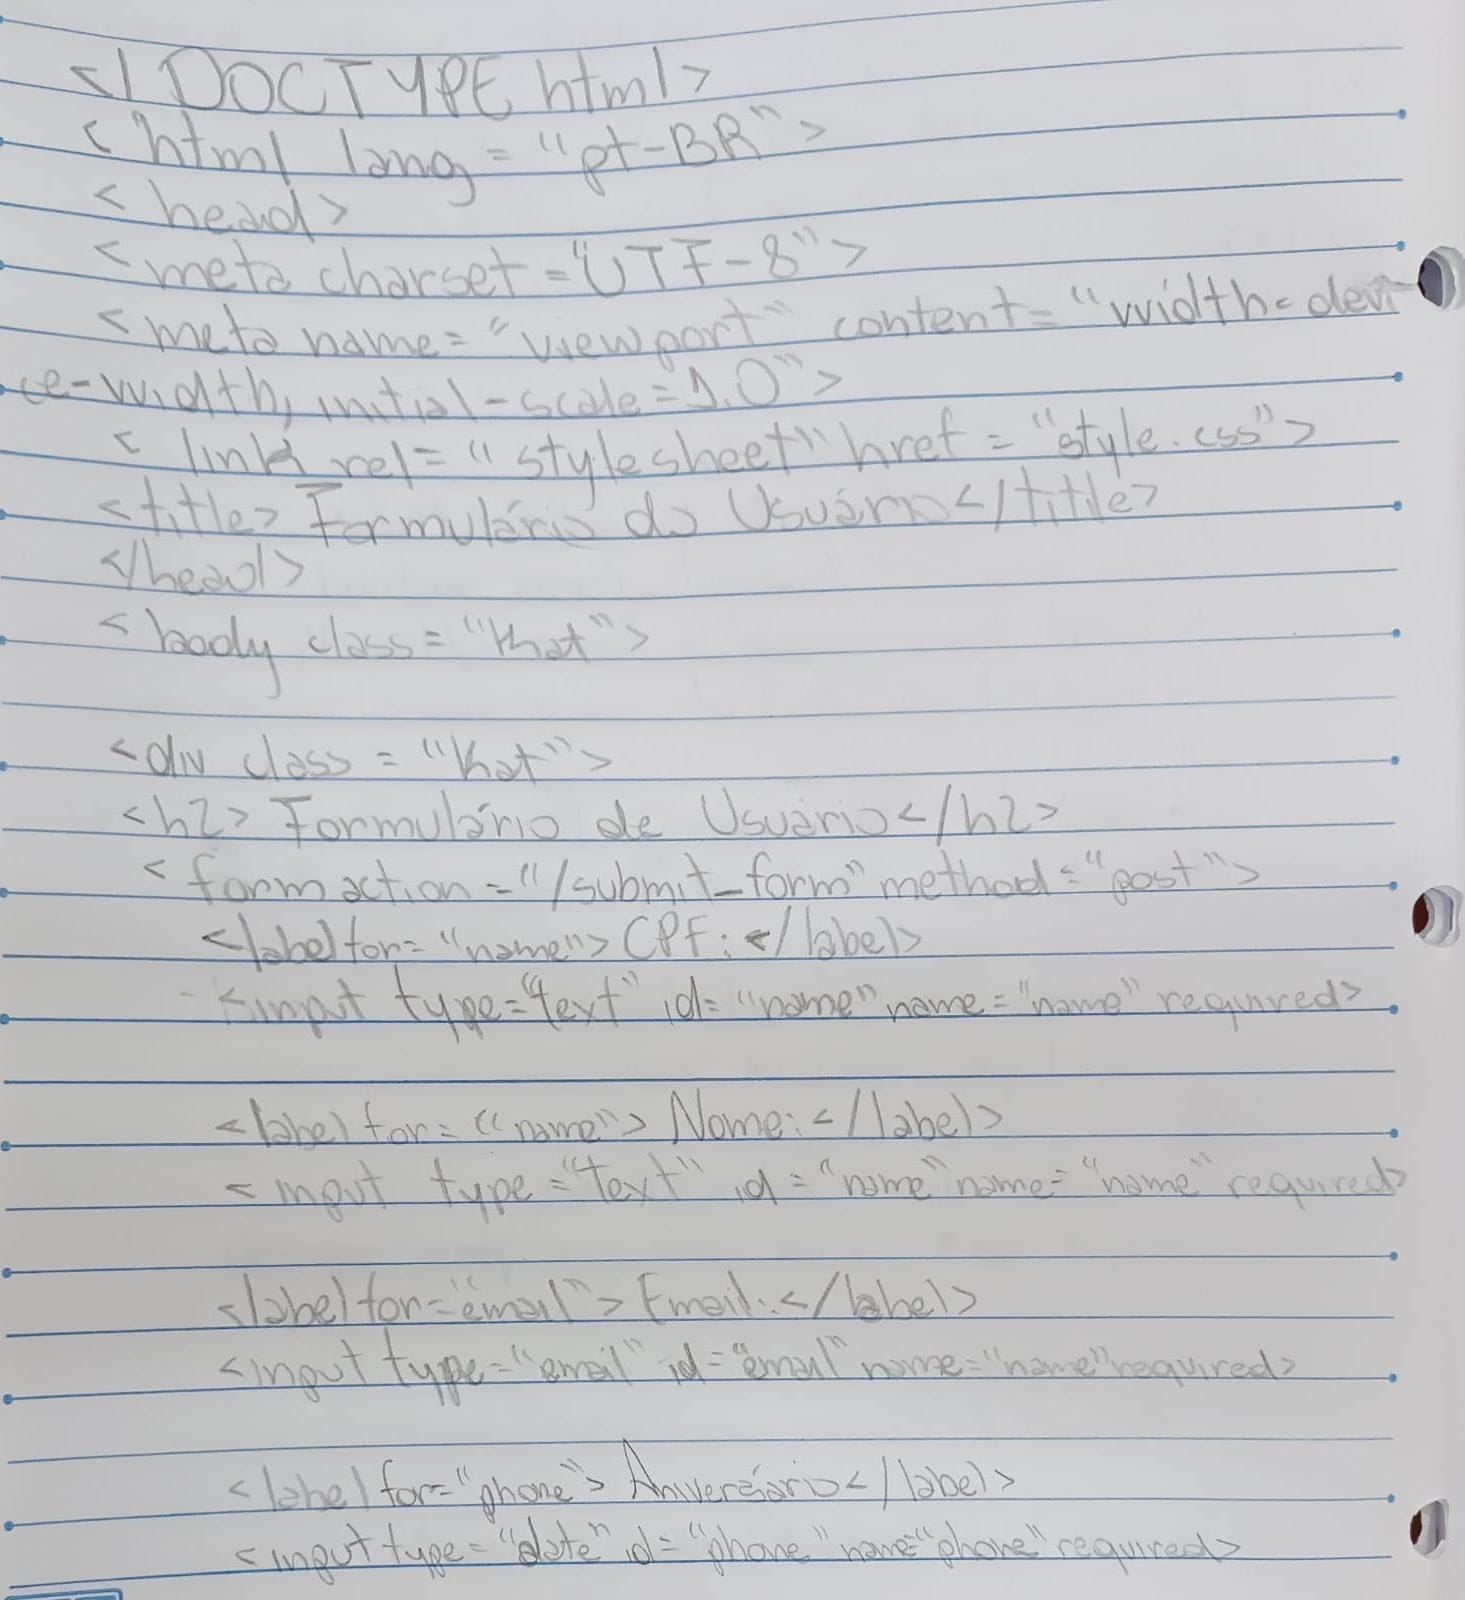 <! DOCTYPE html>
<html lang = "pt-BR">
<head>
<meta charset = "UTF-8">
<meta name = "viewport" content = "width= devi-
ce-width, initial-scale = 1.0">
< link rel = "stylesheet" href = "style.css">
<title> Formulário do Usuário</title>
</head>
<body class = "Kat">
<div class = "Kat">
<h2> Formulário de Usuário</h2>
<form action = "/submit_form" method = "post">
<label for= "name"> CPF: </label>
<input type="text" id= "name" name = "name" required>
<label for= "name"> Nome: </label>
<input type = "text" id = "name" name= "name" required>
<label for="email"> Email: </label>
<input type="email" id="email" name="name" required>
<label for="phone"> Aniversário</label>
<input type="date" id="phone" name="phone" required>